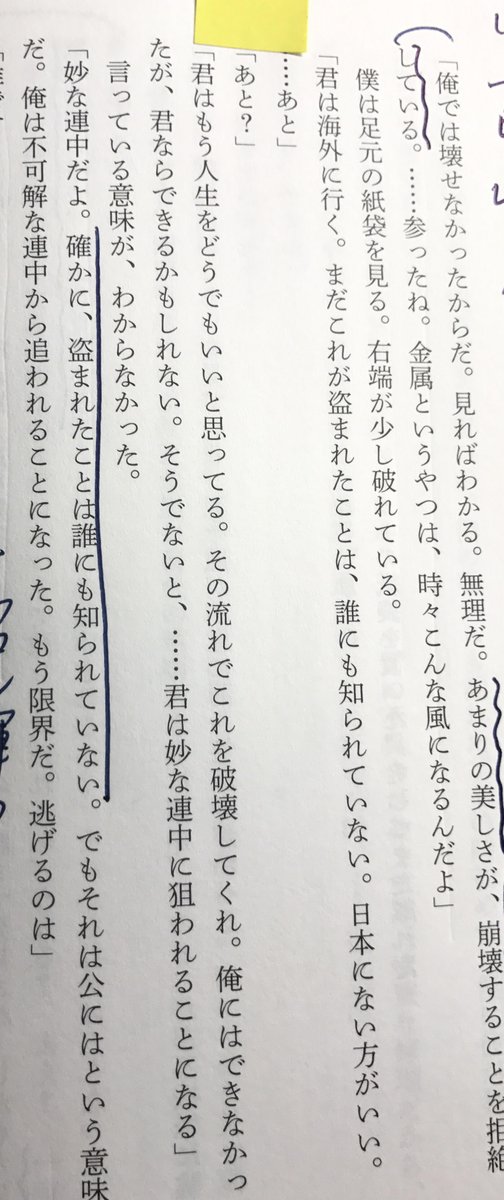 「俺では壊せなかったからだ。見ればわかる。無理だ。あまりの美しさが、崩壊することを拒絶
している。……参ったね。金属というやつは、時々こんな風になるんだよ」
僕は足元の紙袋を見る。右端が少し破れている。
「君は海外に行く。まだこれが盗まれたことは、誰にも知られていない。日本にない方がいい。
……あと」
「あと？」
「君はもう人生をどうでもいいと思ってる。その流れでこれを破壊してくれ。俺にはできなかっ
たが、君ならできるかもしれない。そうでないと、……君は妙な連中に狙われることになる」
言っている意味が、わからなかった。
「妙な連中だよ。確かに、盗まれたことは誰にも知られていない。でもそれは公にはという意味
だ。俺は不可解な連中から追われることになった。もう限界だ。逃げるのは」